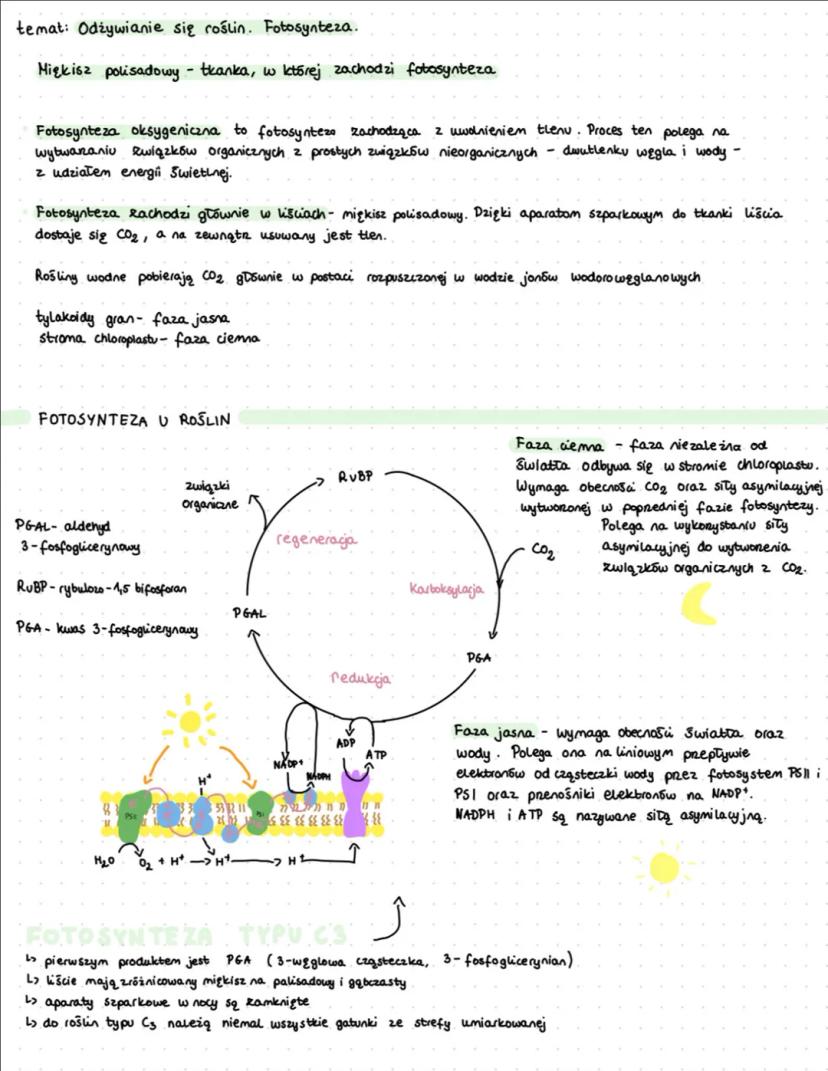 temat: Odżywianie się roślin. Fotosynteza.
Miękisz polisadowy - tkanka, w której zachodzi fotosynteza
Fotosynteza oksygeniczna to fotosynteza zachodząca z uwolnieniem tlenu. Proces ten polega na
wytwarzaniu związków organicznych z prostych związków nieorganicznych - dwutlenku węgla i wody -
z udziałem energii świetlnej.
Fotosynteza zachodzi głównie w liściach - miękisz polisadowy. Dzięki aparatom szparkowym do tkanki liścia
dostaje się CO₂, a na zewnątrz usuwany jest tlen.
Rośliny wodne pobierają CO₂ głównie w postaci rozpuszczonej w wodzie jonów wodorowęglanowych
tylakoidy gran - faza jasna
stroma chloroplastu - faza ciemna
FOTOSYNTEZA U ROŚLIN
Faza ciemna - faza niezależna od
światła odbywa się w stromie chloroplastu.
Wymaga obecności CO₂ oraz siły asymilacyjnej
wytworzonej w poprzedniej fazie fotosyntezy.
Polega na wykorzystaniu siły
asymilacyjnej do wytworzenia
związków organicznych z CO₂.
RuBP
związki
organiczne
regeneracja
CO₂
Karboksylacja
PGAL - aldehyd
3-fosfoglicerynowy
RuBP - rybulozo-1,5 bifosforan
PGA - kwas 3-fosfoglicerynowy
PGAL
PGA
redukcja
NADP⁺
NADPH
ADP
ATP
H⁺
PSII
PSI
H₂O
O₂ + H⁺ → H⁺ → H⁺
Faza jasna - wymaga obecności światła oraz
wody. Polega ona na liniowym przepływie
elektronów od cząsteczki wody przez fotosystem PSII i
PSI oraz przenośniki elektronów na NADP⁺.
NADPH i ATP są nazywane siłą asymilacyjną.
FOTOSYNTEZA TYPU C3
↳ pierwszym produktem jest PGA (3-węglowa cząsteczka, 3-fosfoglicerynian)
↳ liście mają zróżnicowany miękisz na palisadowy i gąbczasty
↳ aparaty szparkowe w nocy są zamknięte
↳ do roślin typu C₃ należą niemal wszystkie gatunki ze strefy umiarkowanej